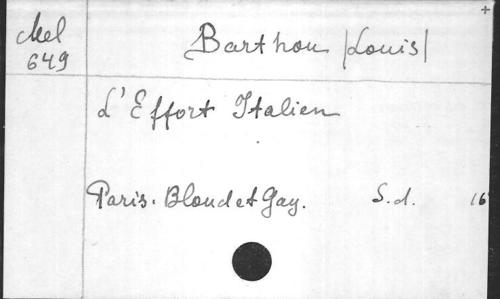 +
Mel
649
Barthou |Louis|
L'Effort Italien
Paris. Bloud et Gay. S.d. 16